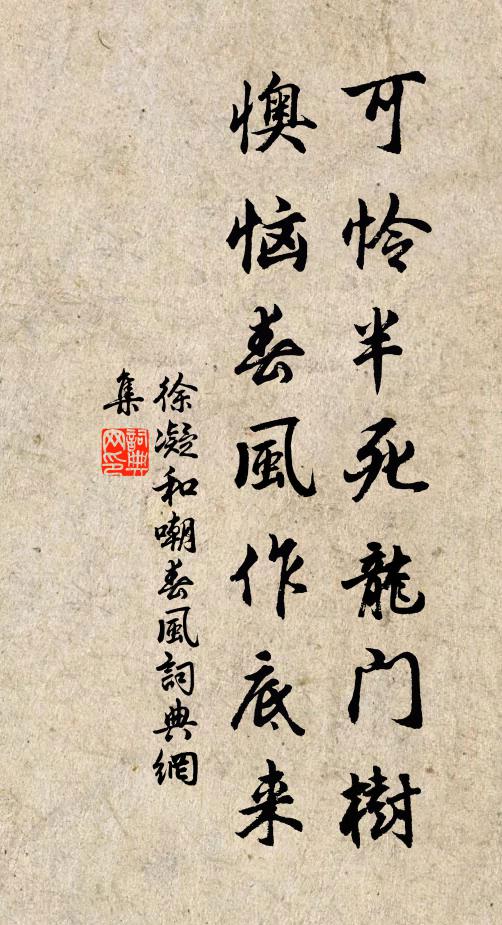 可怜半死龍门樹
懊恼春風作底来
徐凝和嘲春風詞典網
集
詞典网印